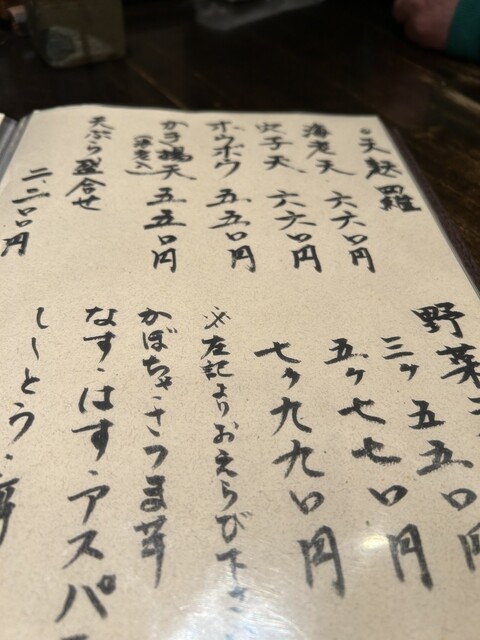 。天麩羅
海老天 六六〇円
穴子天 六六〇円
ホウボウ 五五〇円
かき揚天 五五〇円
(海老入)
天ぷら盛合せ
二、二〇〇円
野菜
三ケ 五五〇円
五ケ 七七〇円
七ケ 九九〇円
※左記よりおえらび下さ
かぼちゃ・さつま芋
なす・はす・アスパ
ししとう・